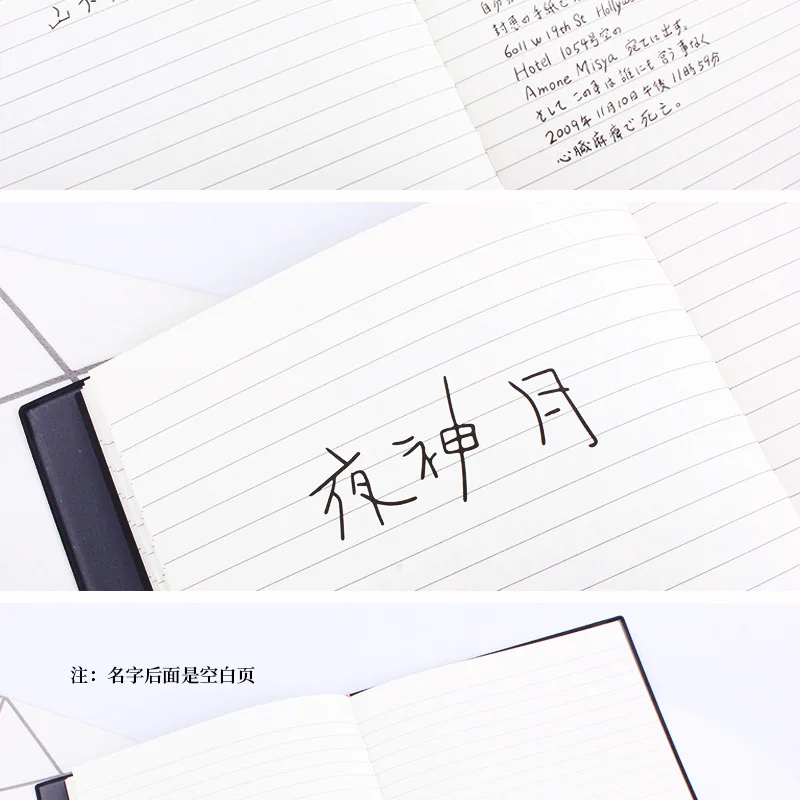 封悪の手紙で
6011 W 19th St Hollyw
Hotel 1054号室の
Amone Misya 宛てに出す。
そして この事は誰にも言う事なく
2009年11月10日午後11時59分
心臓麻痺で死亡。
夜神月
注：名字后面是空白页